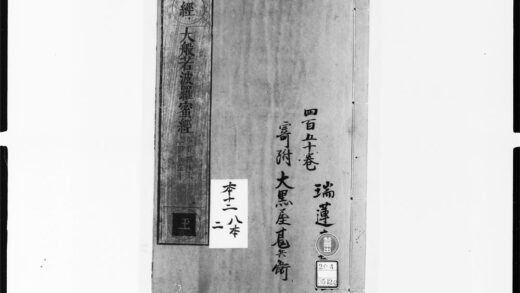 經 大般若波羅蜜經
四百五十巻
寄附 大黒屋甚兵衛
瑞蓮
本十二 八本
二